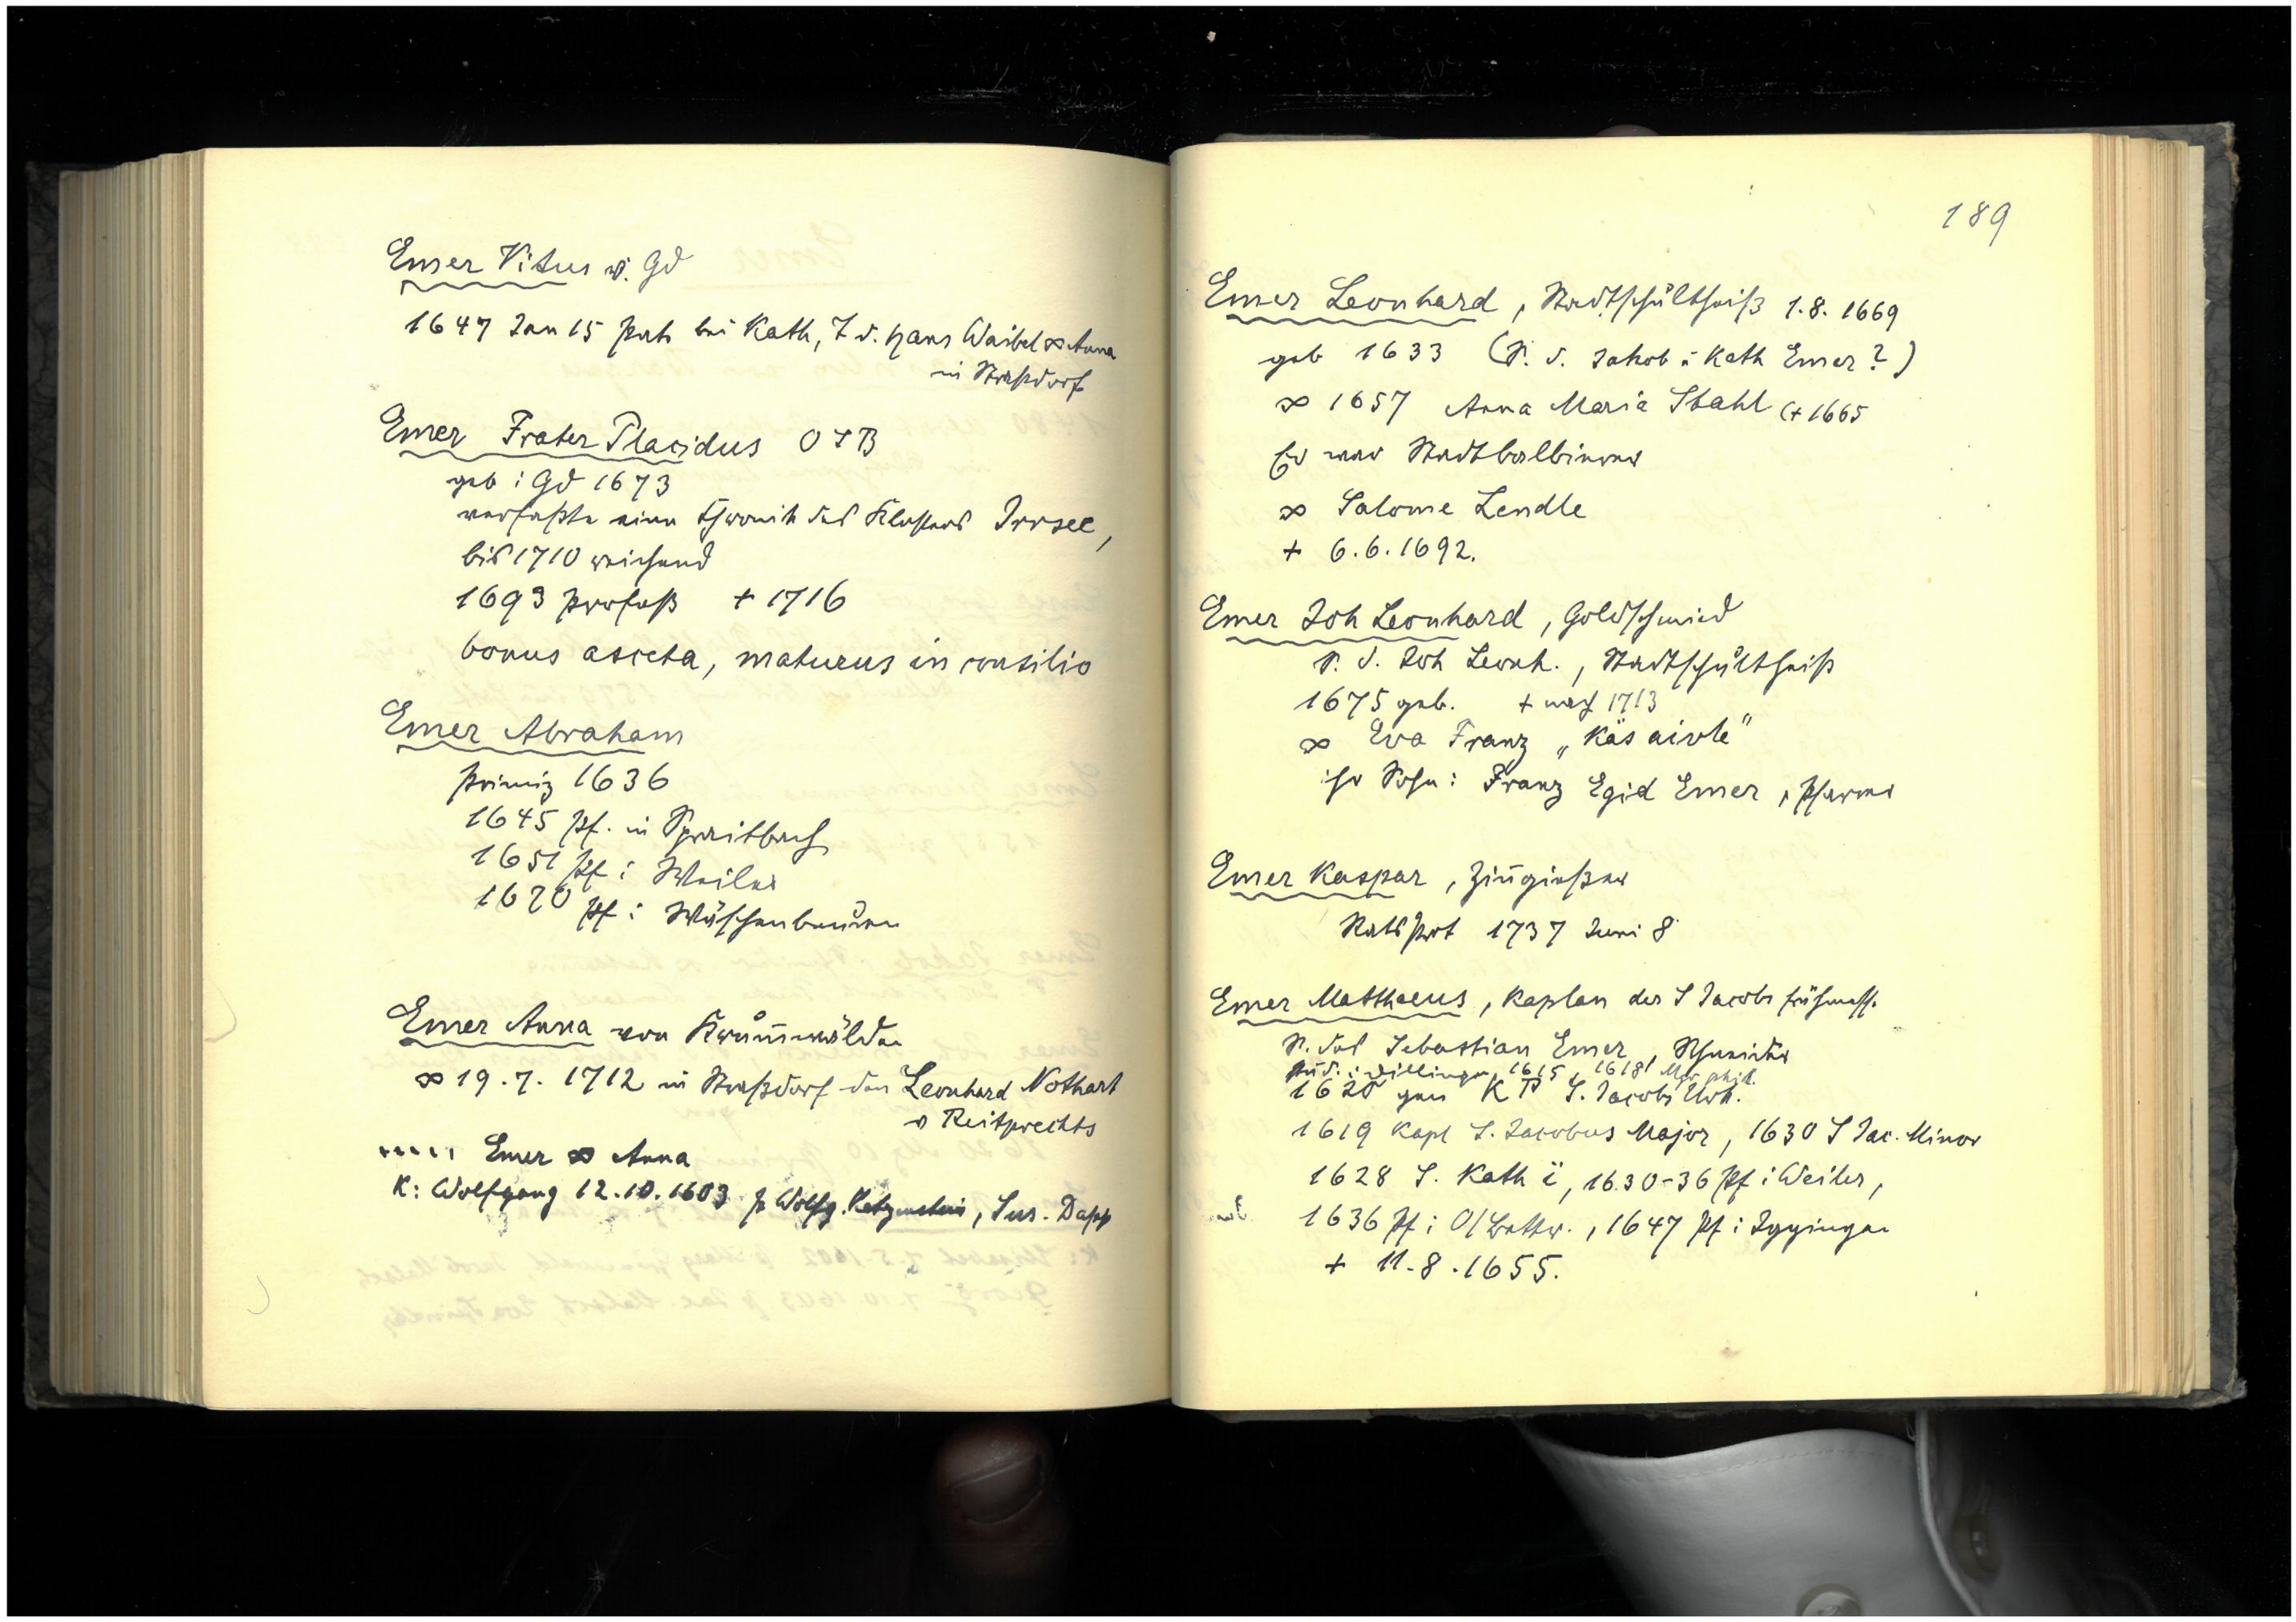 Emer Vitus v. Gd
1647 Jan 15 Pate bei Kath, T d. Hans Waibel ∞ Anna
in Straßdorf
Emer Frater Placidus OSB
geb i Gd 1673
verfaßte eine Chronik des Klosters Irrsee,
bis 1710 reichend
1693 Profeß + 1716
bonus asceta, maturus in consilio
Emer Abraham
Primiz 1636
1645 Pf. in Spraitbach
1651 Pf i Weiler
1670 Pf i Wäschenbeuren
Emer Anna von Krum̄wälden
∞ 19.7. 1712 in Straßdorf den Leonhard Nothart
v Reitprechts
..... Emer ∞ Anna
K: Wolfgang 12.10.1603 P Wolfg. Katzenstein, Sus. Dapp
189
Emer Leonhard, Stadtschultheiß 1.8.1669
geb 1633 (S. d. Jakob u Kath Emer?)
∞ 1657 Anna Maria Stahl (+ 1665
Er war Stadtbalbierer
∞ Salome Lendle
+ 6.6.1692.
Emer Joh Leonhard, Goldschmied
S. d. Joh Leonh., Stadtschultheiß
1675 geb. + nach 1713
∞ Eva Franz „Käsaivle"
ihr Sohn: Franz Egid Emer, Pfarrer
Emer Kaspar, Zin̄gießer
RatsProt 1737 Juni 8
Emer Matthaeus, Kaplan der S Jacobs frühmesse
S. des Sebastian Emer, Schneider
stud. i Dillingen 1615, 1618 Mgr. phil.
1620 gen K P S. Jacobs
1619 Kapl S. Jacobus Major, 1630 S Jac. Minor
1628 S. Kath, 1630-36 Pf i Weiler,
1636 Pf i O/Bettr., 1647 Pf i Iggingen
+ 11.8.1655.